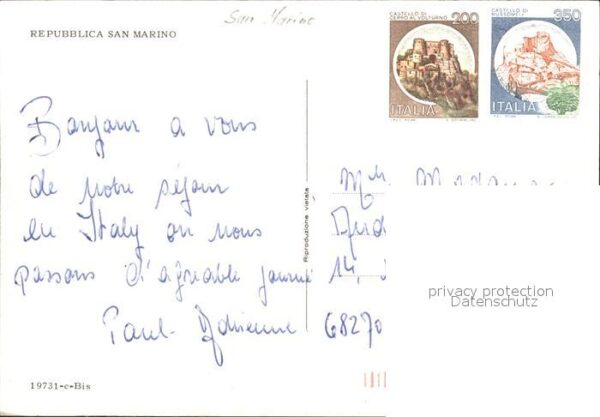 San Marino
REPUBBLICA SAN MARINO
CASTELLO DI
CERRO AL VOLTURNO 200
ITALIA
CASTELLO DI
MUSSOMELI 350
ITALIA
Bonjour a vous
de notre séjour
en Italy ou nous
passons d'agréable journé
Paul - Adrienne
Riproduzione vietata
14,
68270
privacy protection
Datenschutz
19731-c-Bis